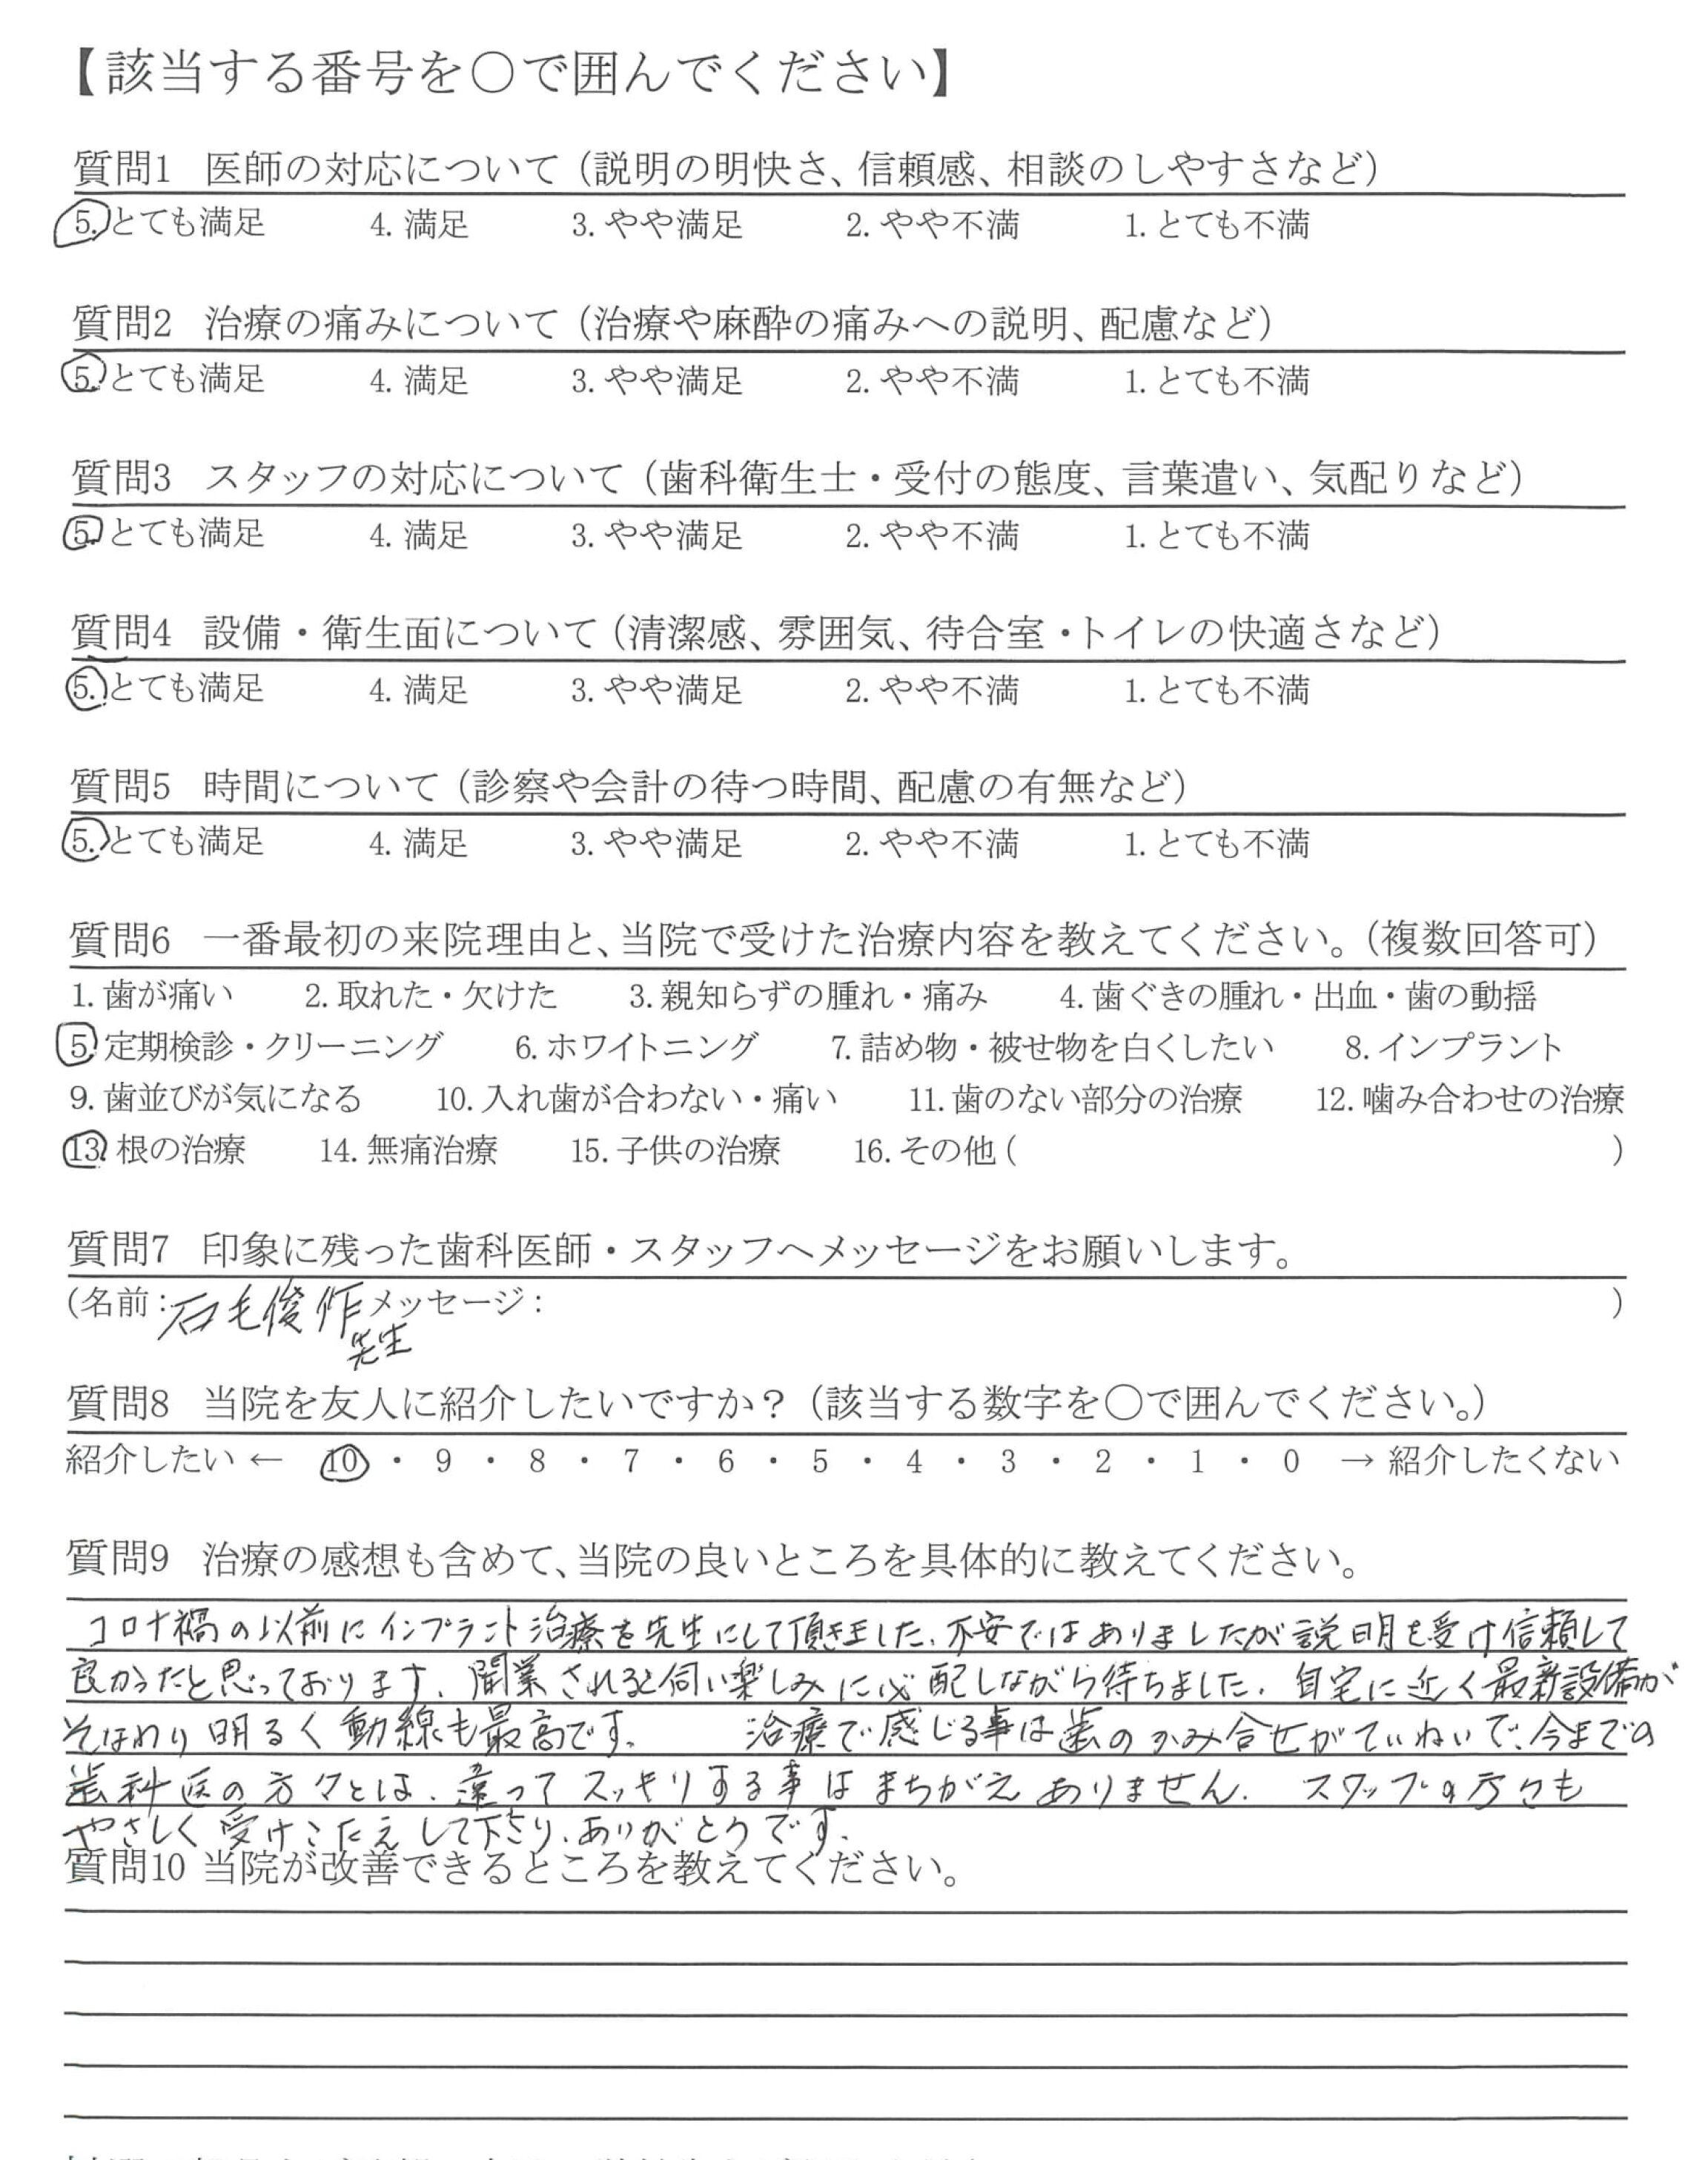 【該当する番号を〇で囲んでください】
質問1 医師の対応について（説明の明快さ、信頼感、相談のしやすさなど）
5. とても満足 4. 満足 3. やや満足 2. やや不満 1. とても不満
質問2 治療の痛みについて（治療や麻酔の痛みへの説明、配慮など）
5. とても満足 4. 満足 3. やや満足 2. やや不満 1. とても不満
質問3 スタッフの対応について（歯科衛生士・受付の態度、言葉遣い、気配りなど）
5. とても満足 4. 満足 3. やや満足 2. やや不満 1. とても不満
質問4 設備・衛生面について（清潔感、雰囲気、待合室・トイレの快適さなど）
5. とても満足 4. 満足 3. やや満足 2. やや不満 1. とても不満
質問5 時間について（診察や会計の待つ時間、配慮の有無など）
5. とても満足 4. 満足 3. やや満足 2. やや不満 1. とても不満
質問6 一番最初の来院理由と、当院で受けた治療内容を教えてください。（複数回答可）
1. 歯が痛い 2. 取れた・欠けた 3. 親知らずの腫れ・痛み 4. 歯ぐきの腫れ・出血・歯の動揺
5. 定期検診・クリーニング 6. ホワイトニング 7. 詰め物・被せ物を白くしたい 8. インプラント
9. 歯並びが気になる 10. 入れ歯が合わない・痛い 11. 歯のない部分の治療 12. 噛み合わせの治療
13. 根の治療 14. 無痛治療 15. 子供の治療 16. その他 ( )
質問7 印象に残った歯科医師・スタッフへメッセージをお願いします。
(名前：石毛俊作 メッセージ： )
先生
質問8 当院を友人に紹介したいですか？（該当する数字を〇で囲んでください。）
紹介したい ← 10 ・ 9 ・ 8 ・ 7 ・ 6 ・ 5 ・ 4 ・ 3 ・ 2 ・ 1 ・ 0 → 紹介したくない
質問9 治療の感想も含めて、当院の良いところを具体的に教えてください。
コロナ禍の以前にインプラント治療を先生にして頂きました、不安ではありましたが説明を受け信頼して
良かったと思っております、開業されると伺い楽しみに心配しながら待ちました. 自宅に近く最新設備が
そなわり明るく動線も最高です。 治療で感じる事は歯のかみ合せがていねいで、今までの
歯科医の方々とは、違ってスッキリする事はまちがえありません. スタッフの方々も
やさしく受けこたえして下さり、ありがとうです.
質問10 当院が改善できるところを教えてください。